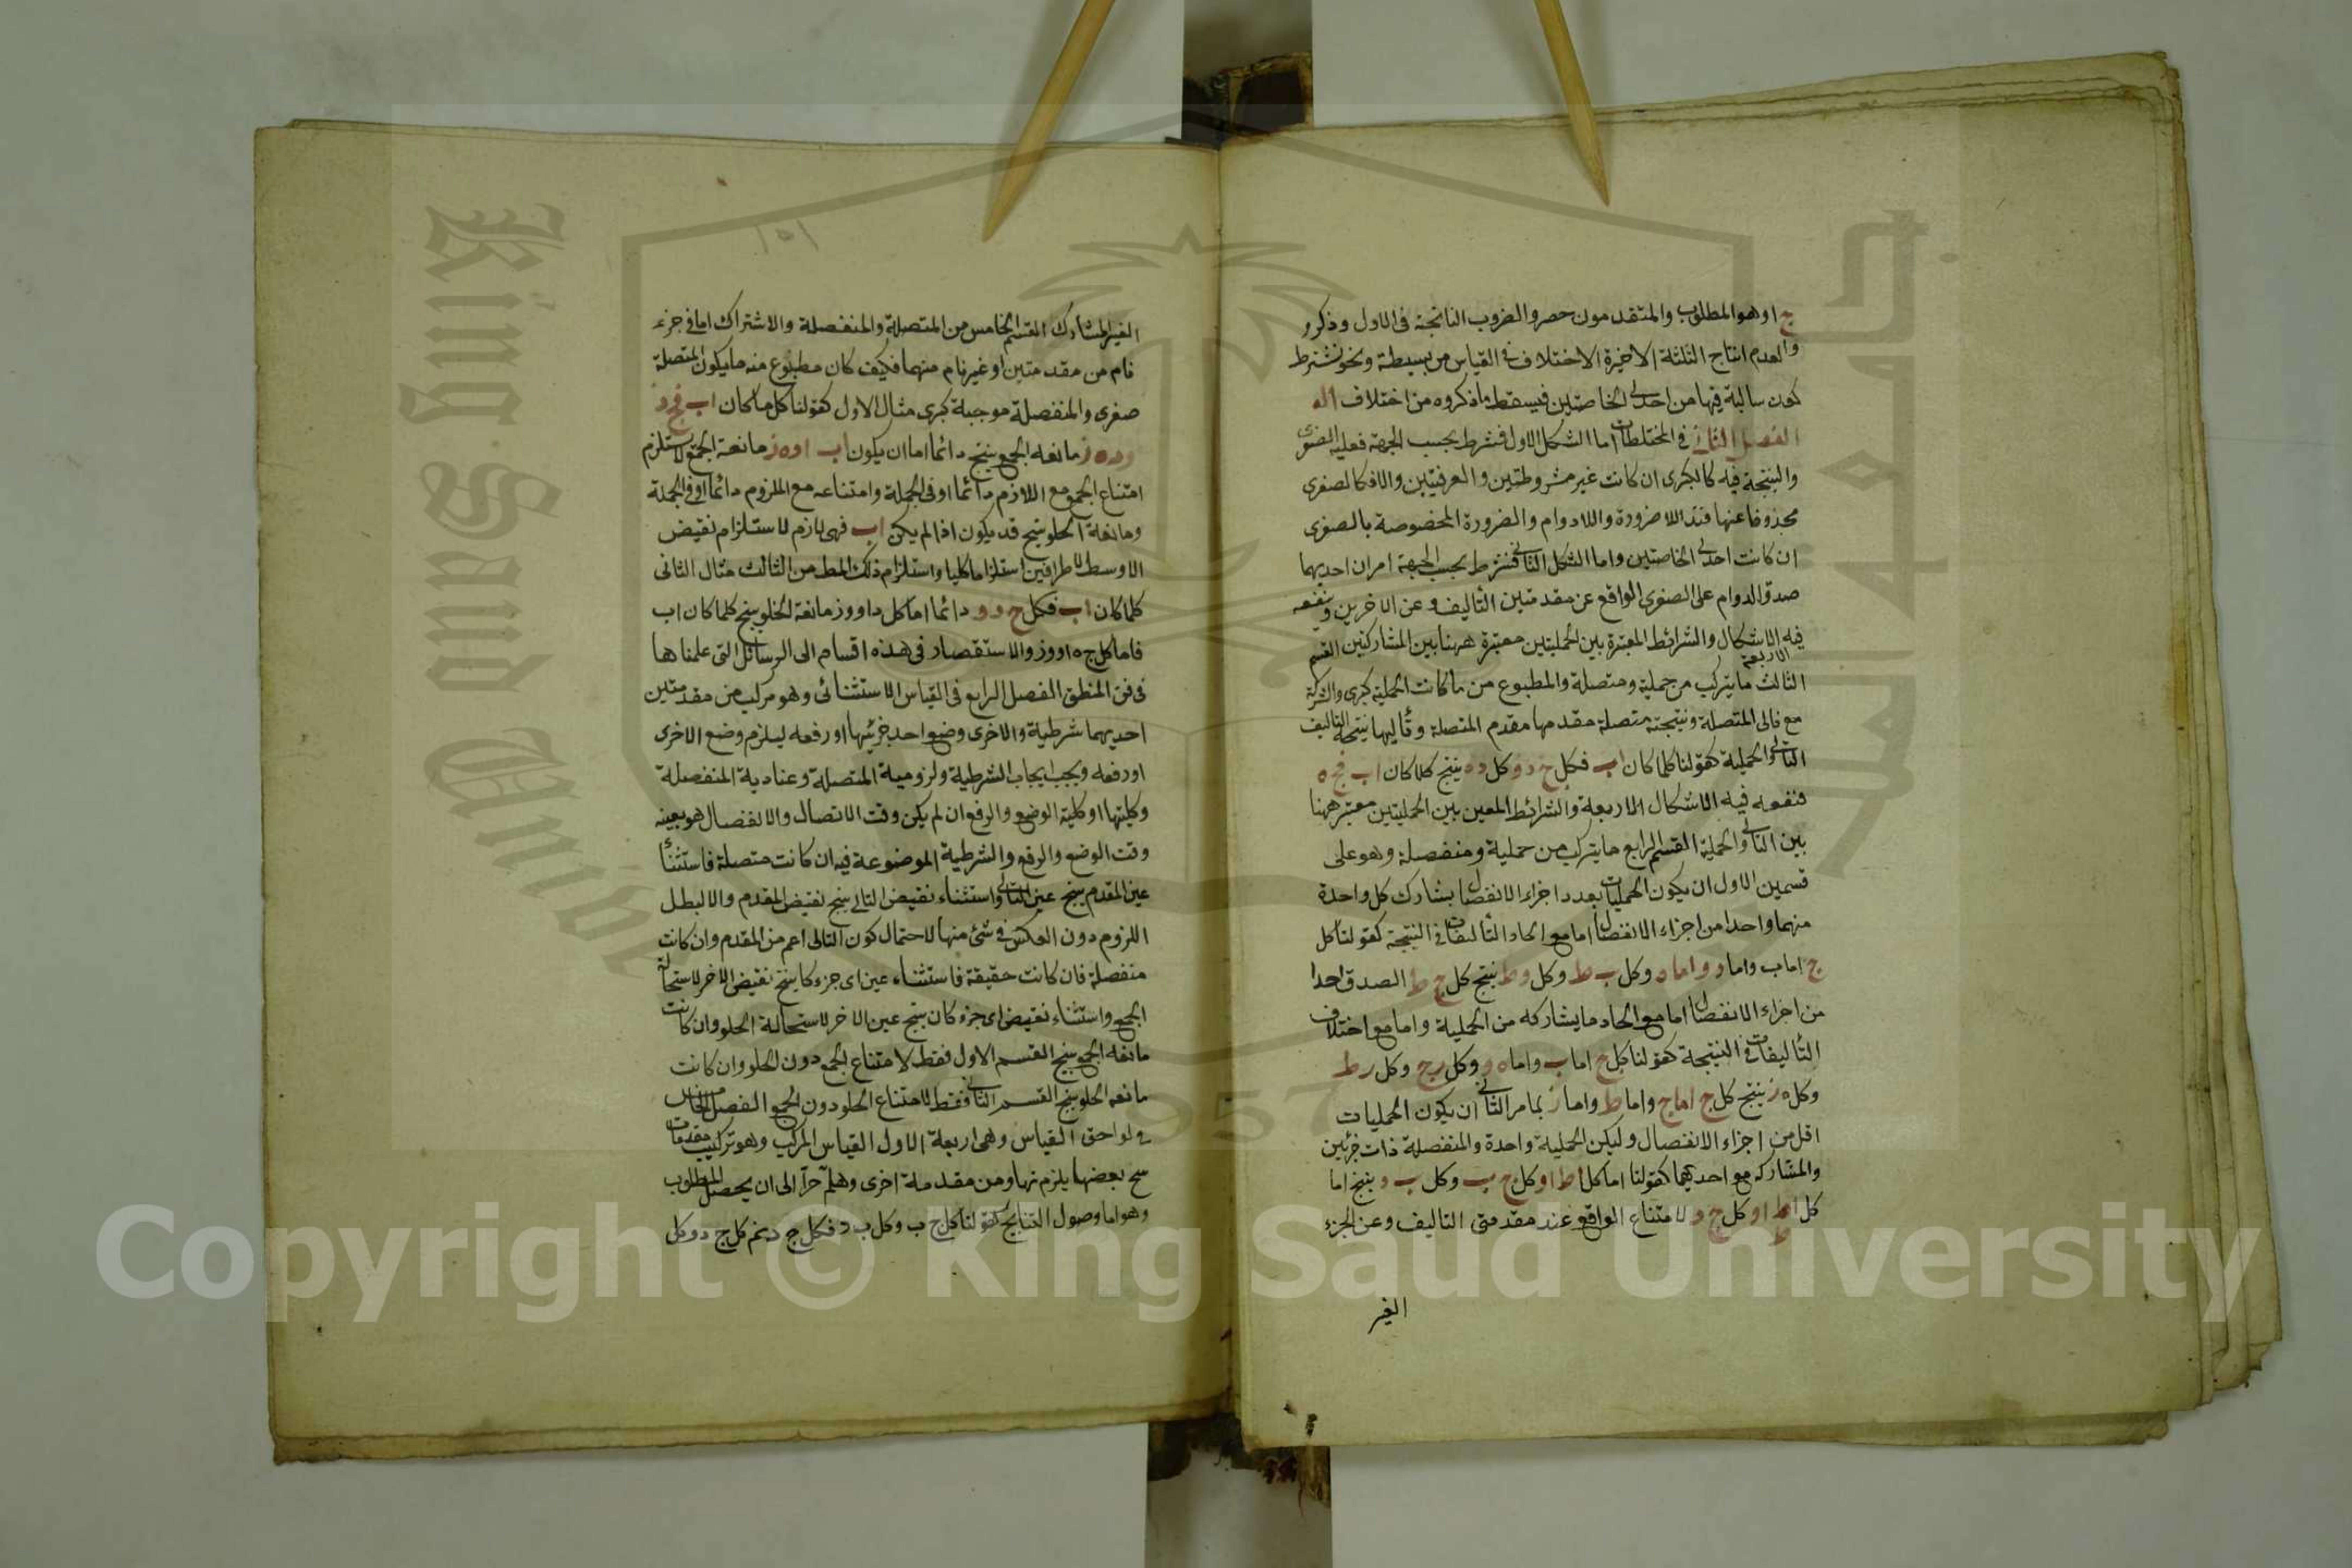 ج ا وهو المطلوب والمتقدمون حصروا الضروب الناتجة فى الاول وذكروا
والعدم انتاج الثلثة الاخيرة الاختلاف فى القياس من بسيطة ونحو نشترط
كون سالبة فيها من احدى الخاصتين فيسقط ماذكروه من اختلاف
الفصل الثانى فى المختلطات اما الشكل الاول فشرط بحسب الجهة فعلية الصغرى
والنتيجة فيه كالكبرى ان كانت غير مشروطتين والعرفيتين والا فكالصغرى
محذوفا عنها قيد اللاضرورة واللادوام والضرورة المخصوصة بالصغرى
ان كانت احدى الخاصتين واما الشكل الثانى فشرط بحسب الجهة امران احديهما
صدق الدوام على الصغرى الواقع عن مقدمتين التاليف وعن الاخرين وينعقد
فيه الاشكال الاربعة والشرائط المعتبرة بين الحمليتين معتبرة ههنا بين المشاركتين القسم
الثالث ما يتركب من حملية ومتصلة والمطبوع من ما كانت الحملية كبرى والشركة
مع تالى المتصلة ونتيجته متصلة مقدمها مقدم المتصلة وتاليها نتيجة التاليف
التالى والحملية كقولنا كلما كان اب فكل ج د وكل د ه ينتج كلما كان اب فج ه
فنفعه فيه الاشكال الاربعة والشرائط المعين بين الحمليتين معتبر ههنا
بين التالى والحملية القسم الرابع ما يتركب من حملية ومنفصلة وهو على
قسمين الاول ان يكون الحمليات بعدد اجزاء الانفصال يشارك كل واحدة
منهما واحدا من اجزاء الانفصال اما مع اتحاد التأليفات فى النتيجة كقولنا كل
ج اما ب واما د واما ه وكل ب ط وكل د ط وكل ه ط ينتج كل ج ط الصدق احدا
من اجزاء الانفصال اما مع اتحاد ما يشاركه من الحملية واما مع اختلاف
التأليفات فى النتيجة كقولنا كل ج اما ب واما ه
وكل ه ز ينتج كل ج اما ج واما ط واما ز بما مر الثانى ان يكون الحمليات
اقل من اجزاء الانفصال وليكن الحملية واحدة والمنفصلة ذات جزئين
والمشاركه مع احديهما كقولنا اما كل ا ط او كل ج ب وكل ب د ينتج اما
كل ا ط او كل ج د لامتناع الواقع عند مقدمتى التاليف وعن الجزء
الغير
١٥١
الغير المشارك القسم الخامس من المتصلة والمنفصلة والاشتراك اما فى جزء
تام من مقدمتين او غير تام منهما فكيف كان مطبوع منه ما يكون المتصلة
صغرى والمنفصلة موجبة كبرى مثال الاول كقولنا كل ما كان اب فج د
مانعه الجمع ينتج دائما اما ان يكون اب او ه ز مانعة الجمع لاستلزم
امتناع الجمع مع اللازم دائما او فى الجملة وامتناعه مع الملزوم دائما او فى الجملة
ومانعة الخلو ينتج قد يكون اذا لم يكن اب فهى لازم لاستلزام نقيض
الاوسط لاطرافين استلزاما كليا واستلزام ذلك المط من الثالث مثال الثانى
كلما كان اب فكل ج د و دائما اما كل د ا و و ز مانعة الخلو ينتج كلما كان اب
فاما كل ج ه او و ز والاستقصاء فى هذه اقسام الى الرسائل التى علمناها
فى فن المنطق الفصل الرابع فى القياس الاستثنائى وهو مركب من مقدمتين
احديهما شرطية والاخرى وضع احد جزئيها او رفعه ليلزم وضع الاخرى
او رفعه ويجب ايجاب الشرطية ولزومية المتصلة وعنادية المنفصلة
وكليتها او كلية الوضع والرفع ان لم يكن وقت الاتصال والانفصال هو بعينه
وقت الوضع والرفع والشرطية الموضوعة فيه ان كانت متصلة فاستثنا
عين المقدم ينتج عين التالى واستثناء نقيض التالى ينتج نقيض المقدم والا لبطل
اللزوم دون العكس فى شئ منها لاحتمال كون التالى اعم من المقدم وان كانت
منفصلة فان كانت حقيقة فاستثناء عين اى جزء كان ينتج نقيض الاخر لاستحالة
الجمع واستثناء نقيض اى جزء كان ينتج عين الاخر لاستحالة الخلو وان كانت
مانعه الجمع ينتج القسم الاول فقط لامتناع الجمع دون الخلو وان كانت
مانعه الخلو ينتج القسم الثانى فقط لامتناع الخلو دون الجمع الفصل الخامس
فى لواحق القياس وهى اربعة الاول القياس المركب وهو تركيب مقدمات
ينتج بعضها يلزم منها ومن مقدمة اخرى وهلم جرا الى ان يحصل المطلوب
وهو اما وصول النتايج كقولنا كل ج ب وكل ب د فكل ج د ثم كل ج د وكل
Copyright © King Saud University
King Saud University
جامعة الملك سعود
1957